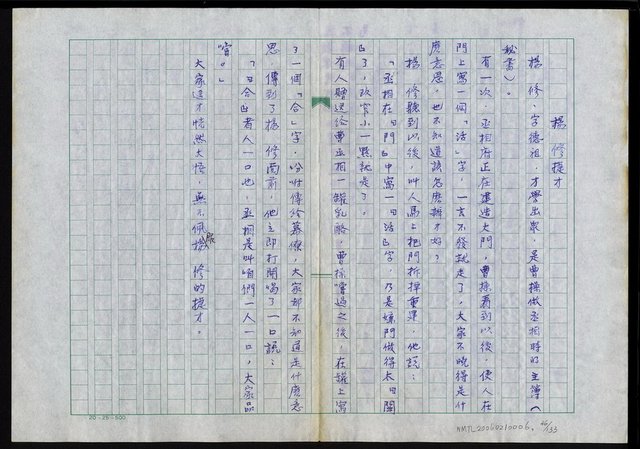 楊修捷才
楊修，字德祖，才學出眾，是曹操做丞相時的主簿（
秘書）。
有一次，丞相府正在建造大門，曹操看到以後，使人在
門上寫一個「活」字，一言不發就走了，大家不曉得是什
麽意思，也不知道該怎麽辦才好？
楊修聽到以後，叫人馬上把門拆掉重建，他說：
「丞相在『門』中寫一『活』字，乃是嫌門做得太『闊
』了，改它小一點就是了。
有人贈送給曹丞相一罐乳酪，曹操嚐過之後，在罐上寫
了一個「合」字，吩咐傳給幕僚，大家都不知道是什麽意
思，傳到了楊修面前，他立即打開喝了一口說：
「『合』者人一口也，丞相是叫咱們一人一口，大家品
嚐。」
大家這才恍然大悟，無不佩服楊修的捷才。
20×25=500
NMTL20060210006.